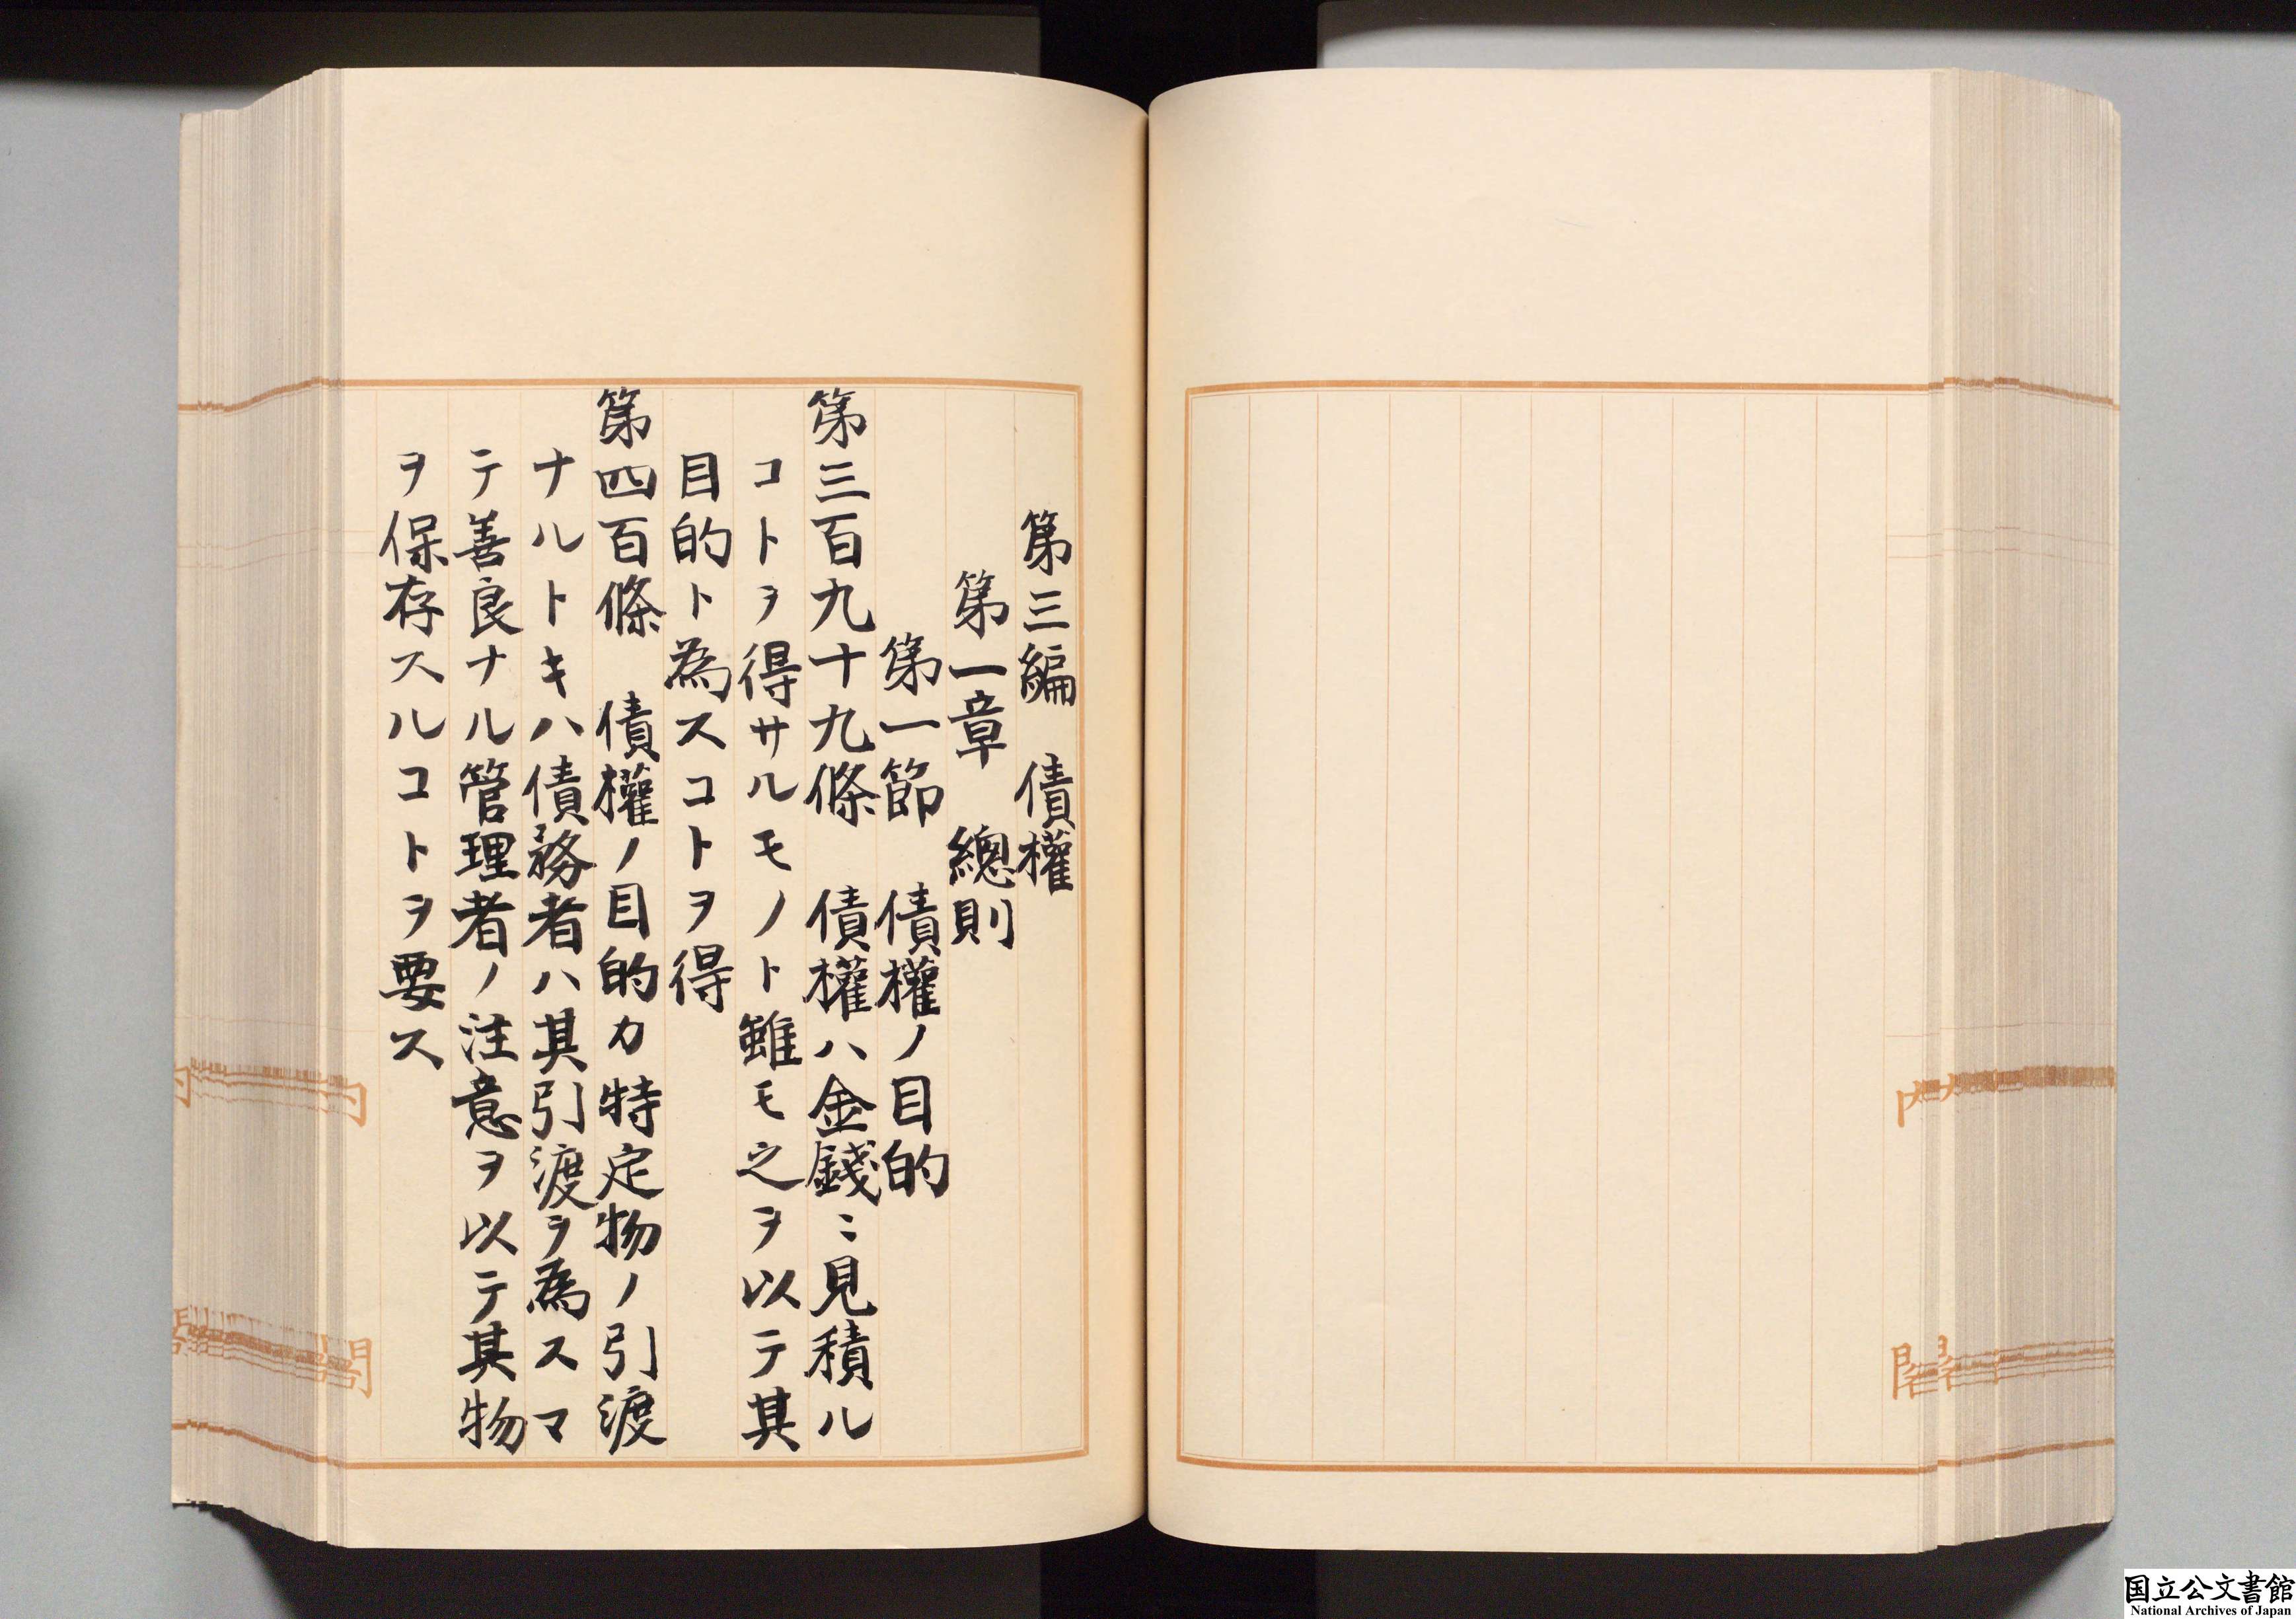 第三編　債權
第一章　總則
第一節　債權ノ目的
第三百九十九條　債權ハ金錢ニ見積ル
コトヲ得サルモノト雖モ之ヲ以テ其
目的ト為スコトヲ得
第四百條　債權ノ目的カ特定物ノ引渡
ナルトキハ債務者ハ其引渡ヲ為スマ
テ善良ナル管理者ノ注意ヲ以テ其物
ヲ保存スルコトヲ要ス
内
閣
内
閣
国立公文書館
National Archives of Japan